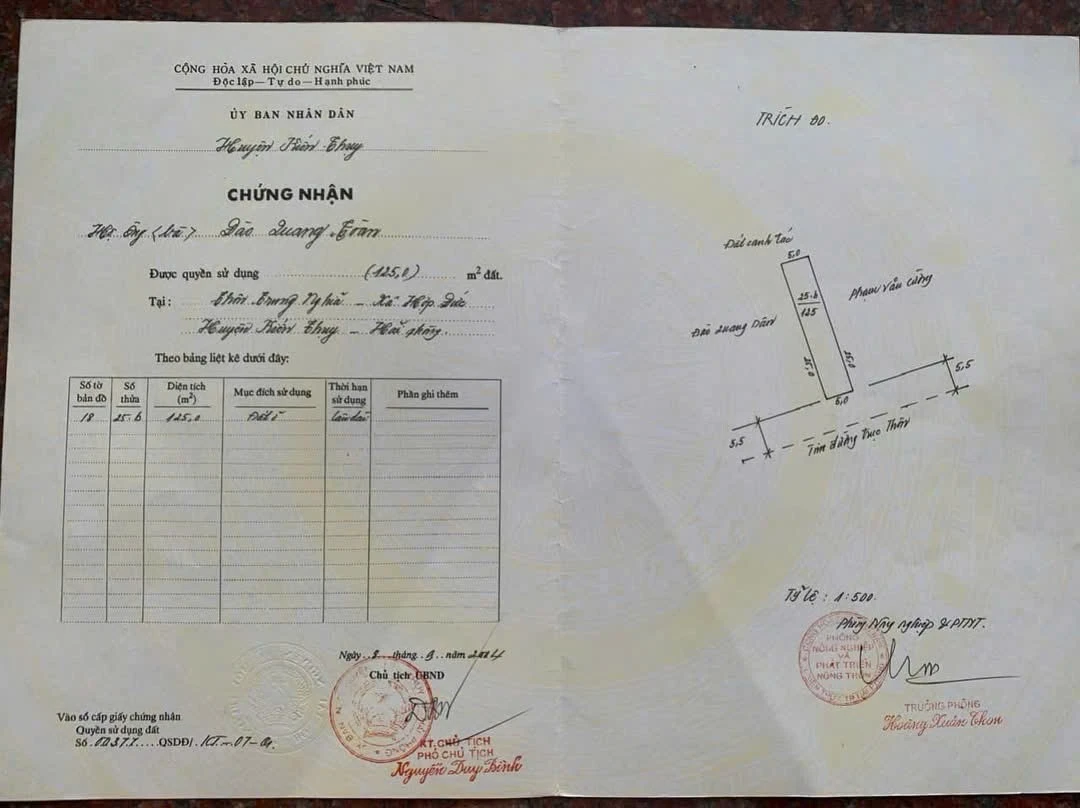 CỘNG HÒA XÃ HỘI CHỦ NGHĨA VIỆT NAM
Độc lập—Tự do—Hạnh phúc
ỦY BAN NHÂN DÂN
Huyện Kiến Thuỵ
CHỨNG NHẬN
Hộ ông (bà) Đào Quang
Được quyền sử dụng (125,0) m² đất.
Tại: Thôn Trung Nghĩa – Xã Hợp Đức
Huyện Kiến Thụy – Hải phòng.
Theo bảng liệt kê dưới đây:
Số tờ bản đồ Số thửa Diện tích (m²) Mục đích sử dụng Thời hạn sử dụng Phần ghi thêm
18 25-b 125,0 Đất ở Lâu dài
Ngày 8 tháng 9 năm 2004
Chủ tịch UBND
KT. CHỦ TỊCH
PHÓ CHỦ TỊCH
Nguyễn Duy Bình
Vào sổ cấp giấy chứng nhận
Quyền sử dụng đất
Số QSDĐ/
TRÍCH ĐO.
Đất canh tác
5,0
25-b
125
Phạm văn
Đào Quang
25,0
25,0
5,0
5,5
5,5
Tim đường trục Thôn
Tỷ lệ: 1:500.
Phòng Nông nghiệp & PTNT.
PHÒNG
NÔNG NGHIỆP
VÀ
PHÁT TRIỂN
NÔNG THÔN
TRƯỞNG PHÒNG
Hoàng Xuân